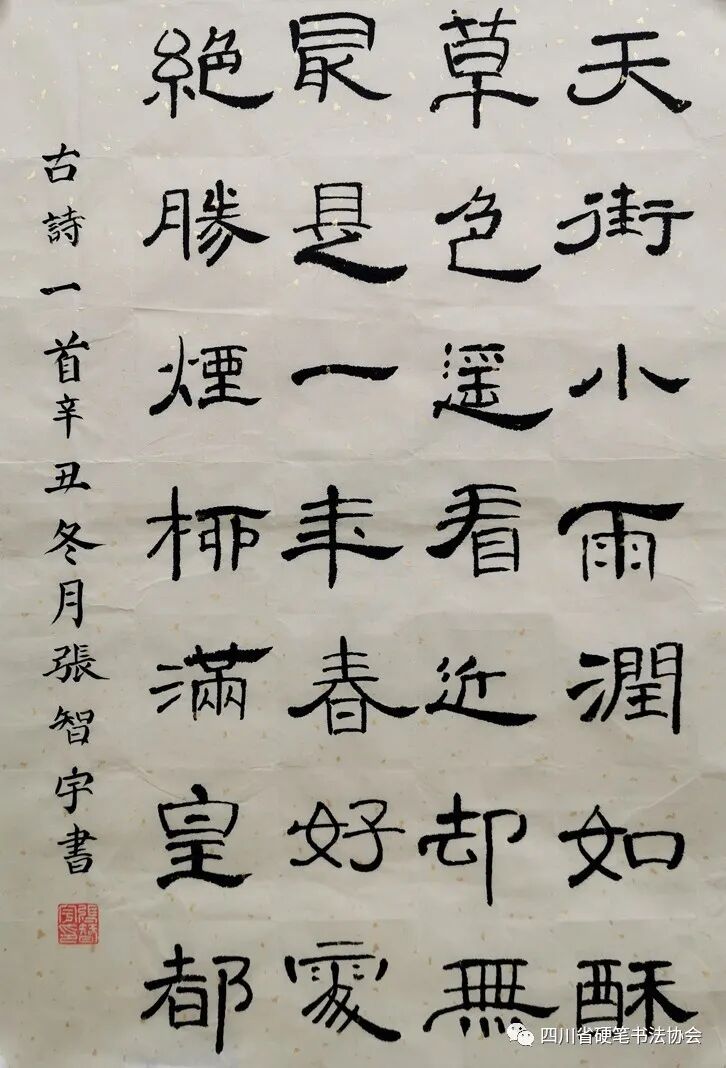 天街小雨潤如酥
草色遥看近却無
最是一年春好處
絕勝煙柳滿皇都
古詩一首辛丑冬月張智宇書
四川省硬笔书法协会